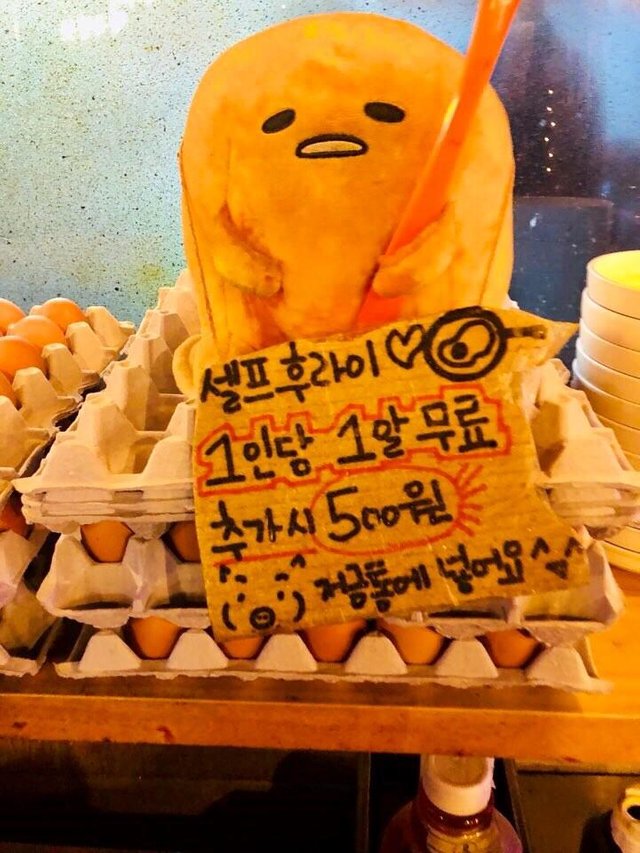 셀프 후라이♡
1인당 1알 무료
추가시 500원
저금통에 넣어요^^